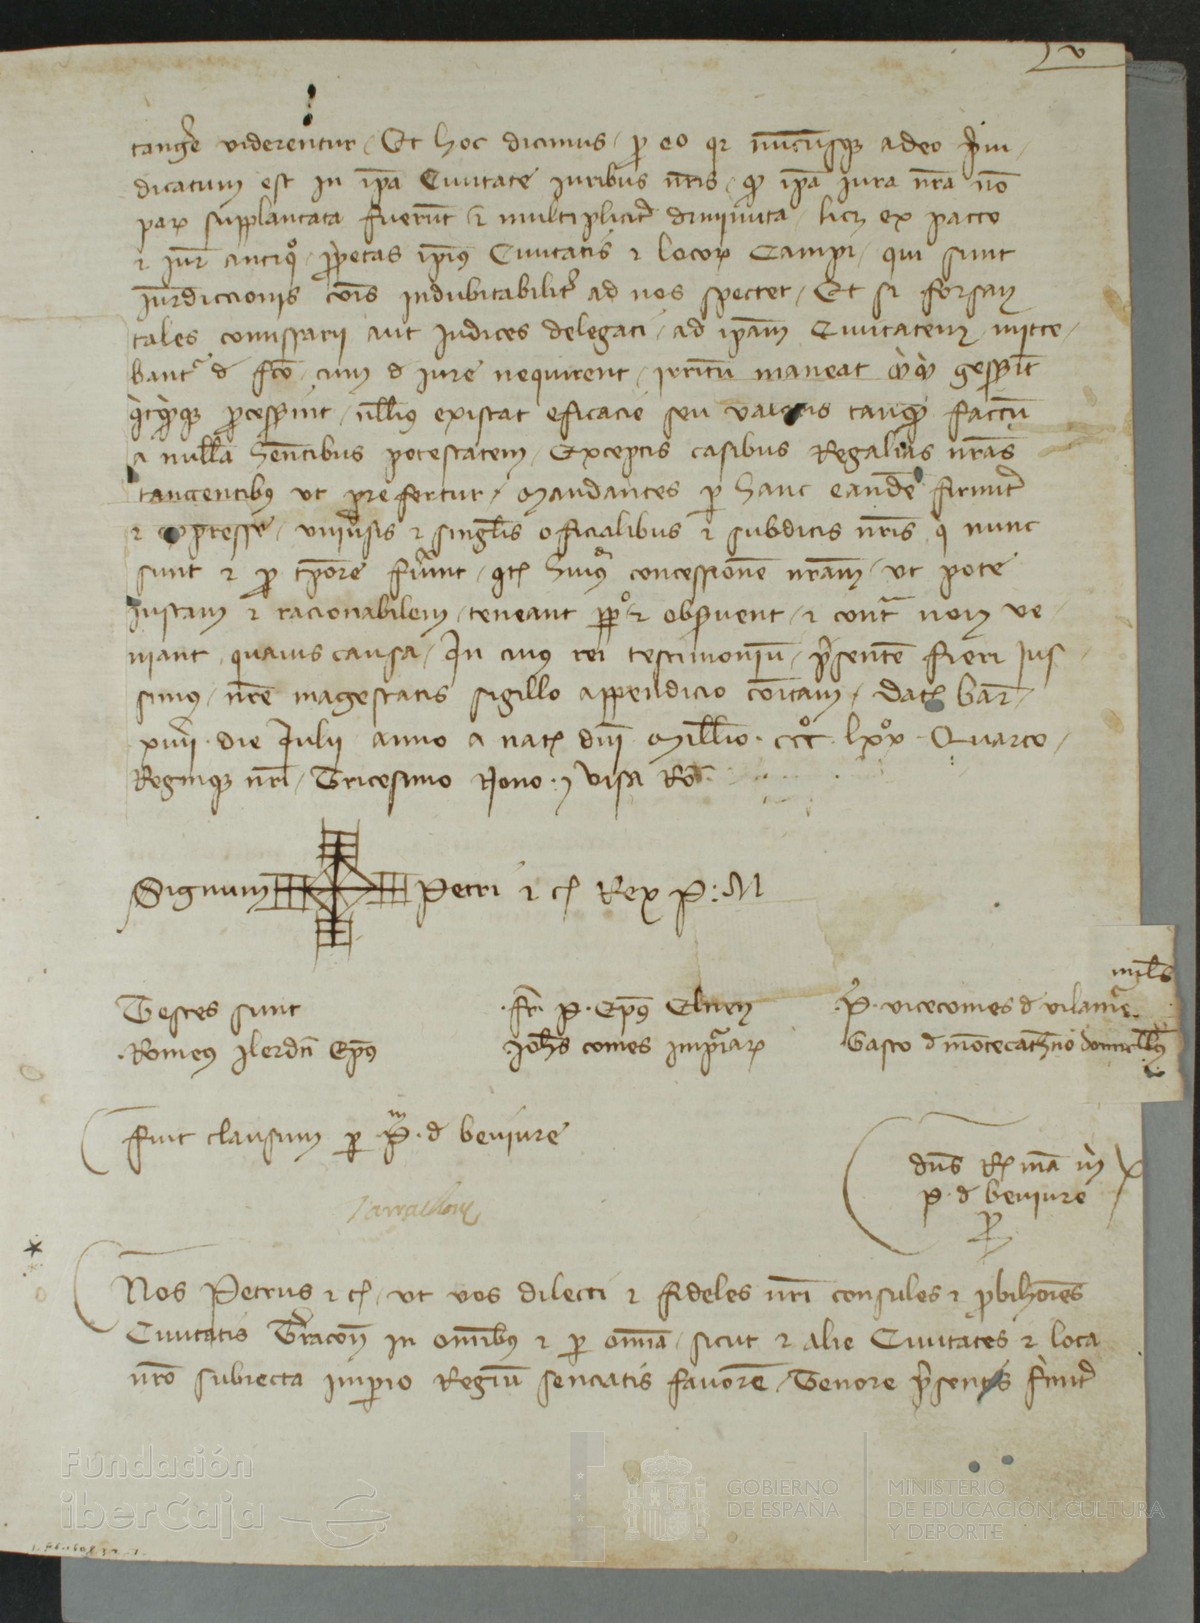 v
tang̃e viderentur / Et hoc dicimus / ꝑ eo qr nu̅cusqꝫ adeo
dicatum est in ip̃a Civitate iuribus nr̃is / qꝫ ip̃a iura nr̃a no̅
paꝝ supplantata fuerũt & multiplicit̃ diminuta / licꝫ ex pacto
& iur̃ antiqᵒ ꝓp̃etas ip̃iꝰ Civitatis & locoꝝ Campi / qui sunt
iur̃diccionis co̅is indubitabilit̃ ad nos spectet / Et si forsan
tales comissarii aut iudices delegati / ad ip̃am Civitatem mitte /
bant᷑ d̃ fc̃o / cum d̃ iure nequirent / irritu̅ maneat gesseri̅t
ꝓcesseri̅t / nll̃ius existat eficacie seu valoris tanqꝫ factu̅
a nulla he̅ntibus potestatem / Exceptis casibus Regalias nr̃as
tangentibꝰ ut prefertur / Mandantes ꝑ hanc eande̅ firmit̃
& expresse / uniṽsis & singl̃is oficialibus & subditis nr̃is q̃ nunc
sunt & ꝓ tp̃ore fũint / qt̃ huiꝰ concessione̅ nr̃am / ut pote
iustam & racionabilem / teneant ꝑpᵒ & obs̃vent / & cont̃ non ve /
niant quavis causa / In cuiꝰ rei testimoniu̅ / p̃sente̅ fieri ius
simus / nr̃e magestatis sigillo appendicio co̅itam / Dat̃ bar̃ /
xiiii · die Iulii anno a nat̃ dn̅i Mill̃io · cccᵒ · lxxᵒ · Quarto /
Regniqꝫ nr̃i / Tricesimo Nono · Visa Ro̅
Signum Petri & c̃ Rex P : M
Testes sunt
· Romeꝰ Ilerdn̅ Ep̃s
· fr̃ · P · Ep̃s Elnen̅
Joh̃s comes Impuriaꝝ
mil̃s
· P̃ · vicecomes d̃ vilamu̅
Gasto d̃ mo̅tecath̃no domicellꝰ
Fuit clausum ꝑ P̃ · d̃ beviure
dn̅s Rex ma̅
P · d̃ beviure
ꝓ
Tarrachone
Nos Petrus & c̃ / ut vos dilecti & fideles nr̃i consules & ꝓbiho̅ies
Civitatis Tr̃acon̅ in om̅ibꝰ & ꝑ om̅ia / sicut & alie Civitates & loca
nr̃o subiecta imꝑio Regiu̅ senciatis favore̅ / Tenore p̃sentis firmit̃
Fundación
iberCaja
GOBIERNO
DE ESPAÑA
MINISTERIO
DE EDUCACIÓN, CULTURA
Y DEPORTE